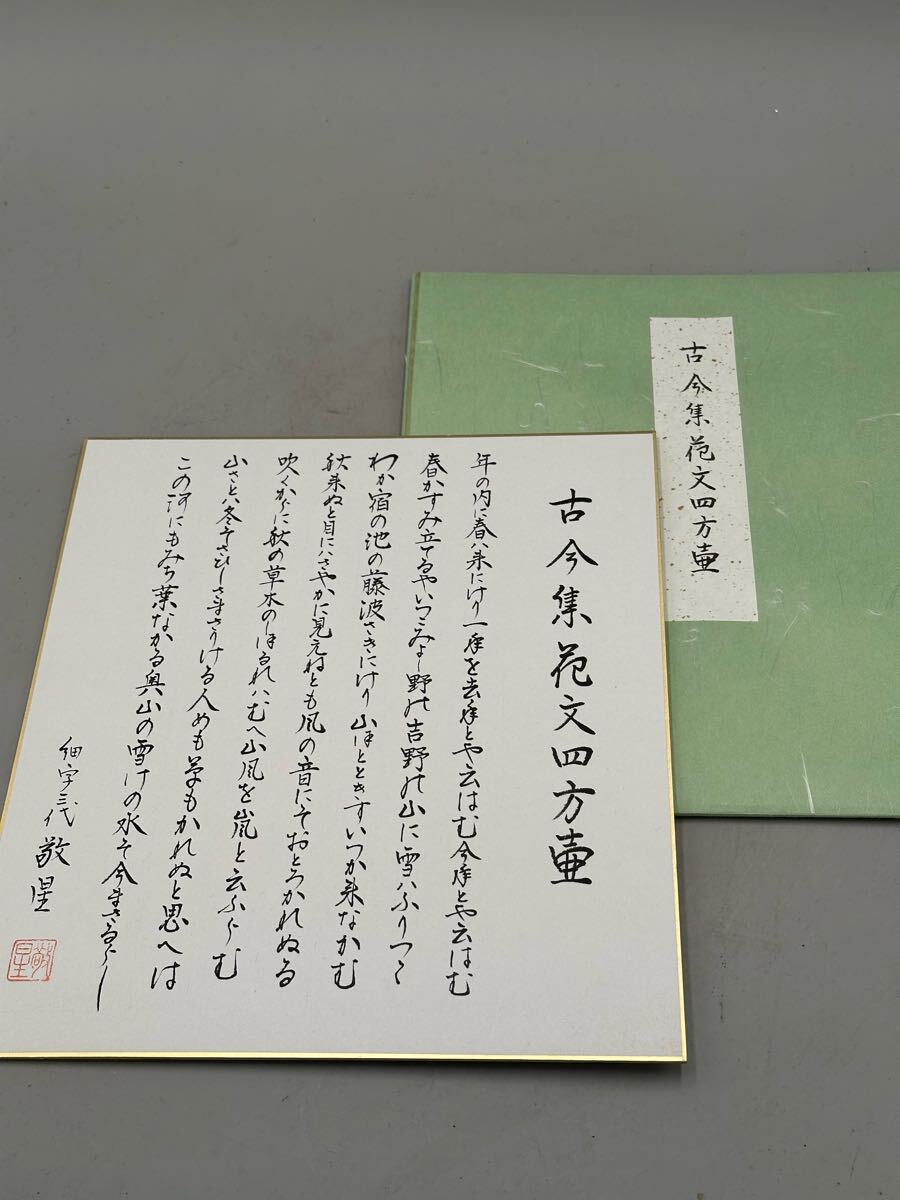 古今集花文四方壷
年の内に春ハ来にけり一年を去年とや云はむ今年とや云はむ
春かすみ立てるやいつこみよし野の吉野の山に雪ハふりつゝ
わか宿の池の藤波さきにけり山ほとときすいつか来なかむ
秋来ぬと目にハさやかに見えねとも風の音にそおとろかれぬる
吹くからに秋の草木のしほるれハむへ山風を嵐と云ふらむ
山さとハ冬そさひしさまさりける人めも草もかれぬと思へは
この河にもみち葉なかる奥山の雪けの水そ今まさるらし
細字三代 敬星
敬星
古今集花文四方壷